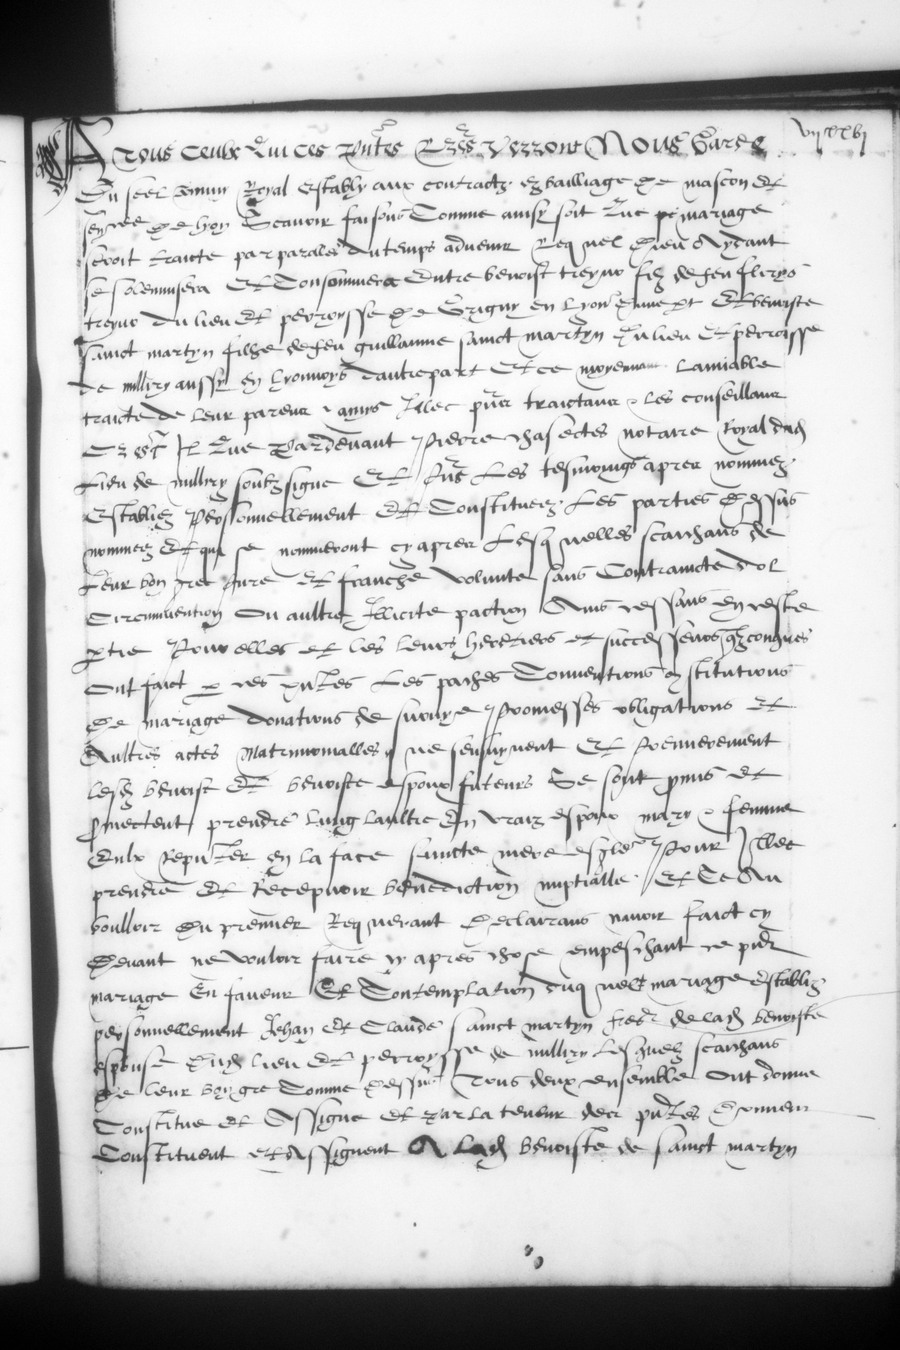 vii xxvi
A Tous Ceulx Qui ces pntes Lrēs Verront Nous Garde
Du seel commun Royal estably aux contractz en bailliage de mascon et
sen^cee de lyon Scavoir faisons Comme ainsy soit Que mariage
seroit traicte par parolles du temps advenir Lequel Dieu Aydant
se solempnisera Et Consommera Entre benoist treyno filz de feu flerys
treyno du lieu et perroysse de Grigny en Lyon^s dune pt Et benoiste
sainct martyn filhe de feu guillaume sainct martyn du lieu et perroisse
de millery aussy en lyonnoys daultre part Et ce moyennant Lamiable
traicte de leur parens & amys Illec pñs traictans & les conseillans
Que Pardevant Pierre chasectes notaire Royal dud
Lieu de millery soubzsigne Et pñs Les tesmoings apres nommez
Establiz Personnellement Et Constituez Les parties dessus
nommez Et qui se nommeront cy apres Lesquelles scaichans de
Leur bon gre pure et franche volunte sans Contraincte dol
Circonvention Ou aultre Illicite paction Ains
Pour elles et les leurs heretiers et successeurs qlzconques
Ont faict p ces pntes Les paches Conventions constitutions
De mariage donations de survye Promesses obligations et
Aultres actes Matrimonialles que sensuyvent Et Premierement
lesd benoist et benoiste espoux futeurs Se sont promis et
promectent prendre lung laultre En vraiz espoux mary & femme
Eulx En la face saincte mere esglise Pour Illec
prendre Et Recepvoir benediction nuptialle Et Ce Au
voulloir Du premier Requerant Declairans navoir faict cy
Devant ne vouloir faire cy apres chose empeschant ce pnt
mariage En faveur Et Contemplation duquel mariage establiz
personnellement Jehan Et Claude sainct martyn freres de lad benoiste
espouse Dud lieu Et perroysse de millery Lesquelz scaichans
De leur bon gre Comme Dessus Tous deux ensemble Ont donne
Constitue et Assigne et par la teneur des pntes Donnent
Constituent et Assignent A Lad benoiste de sainct martyn